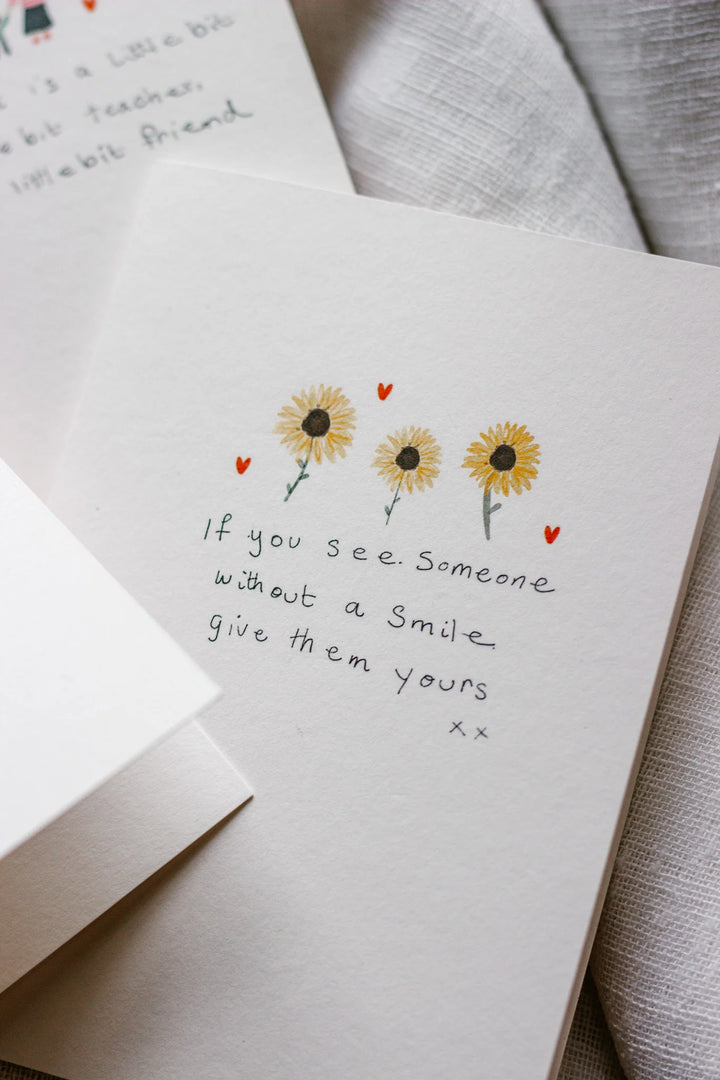 is a little bit
bit teacher,
little bit friend
If you see. Someone
without a Smile.
give them yours
xx